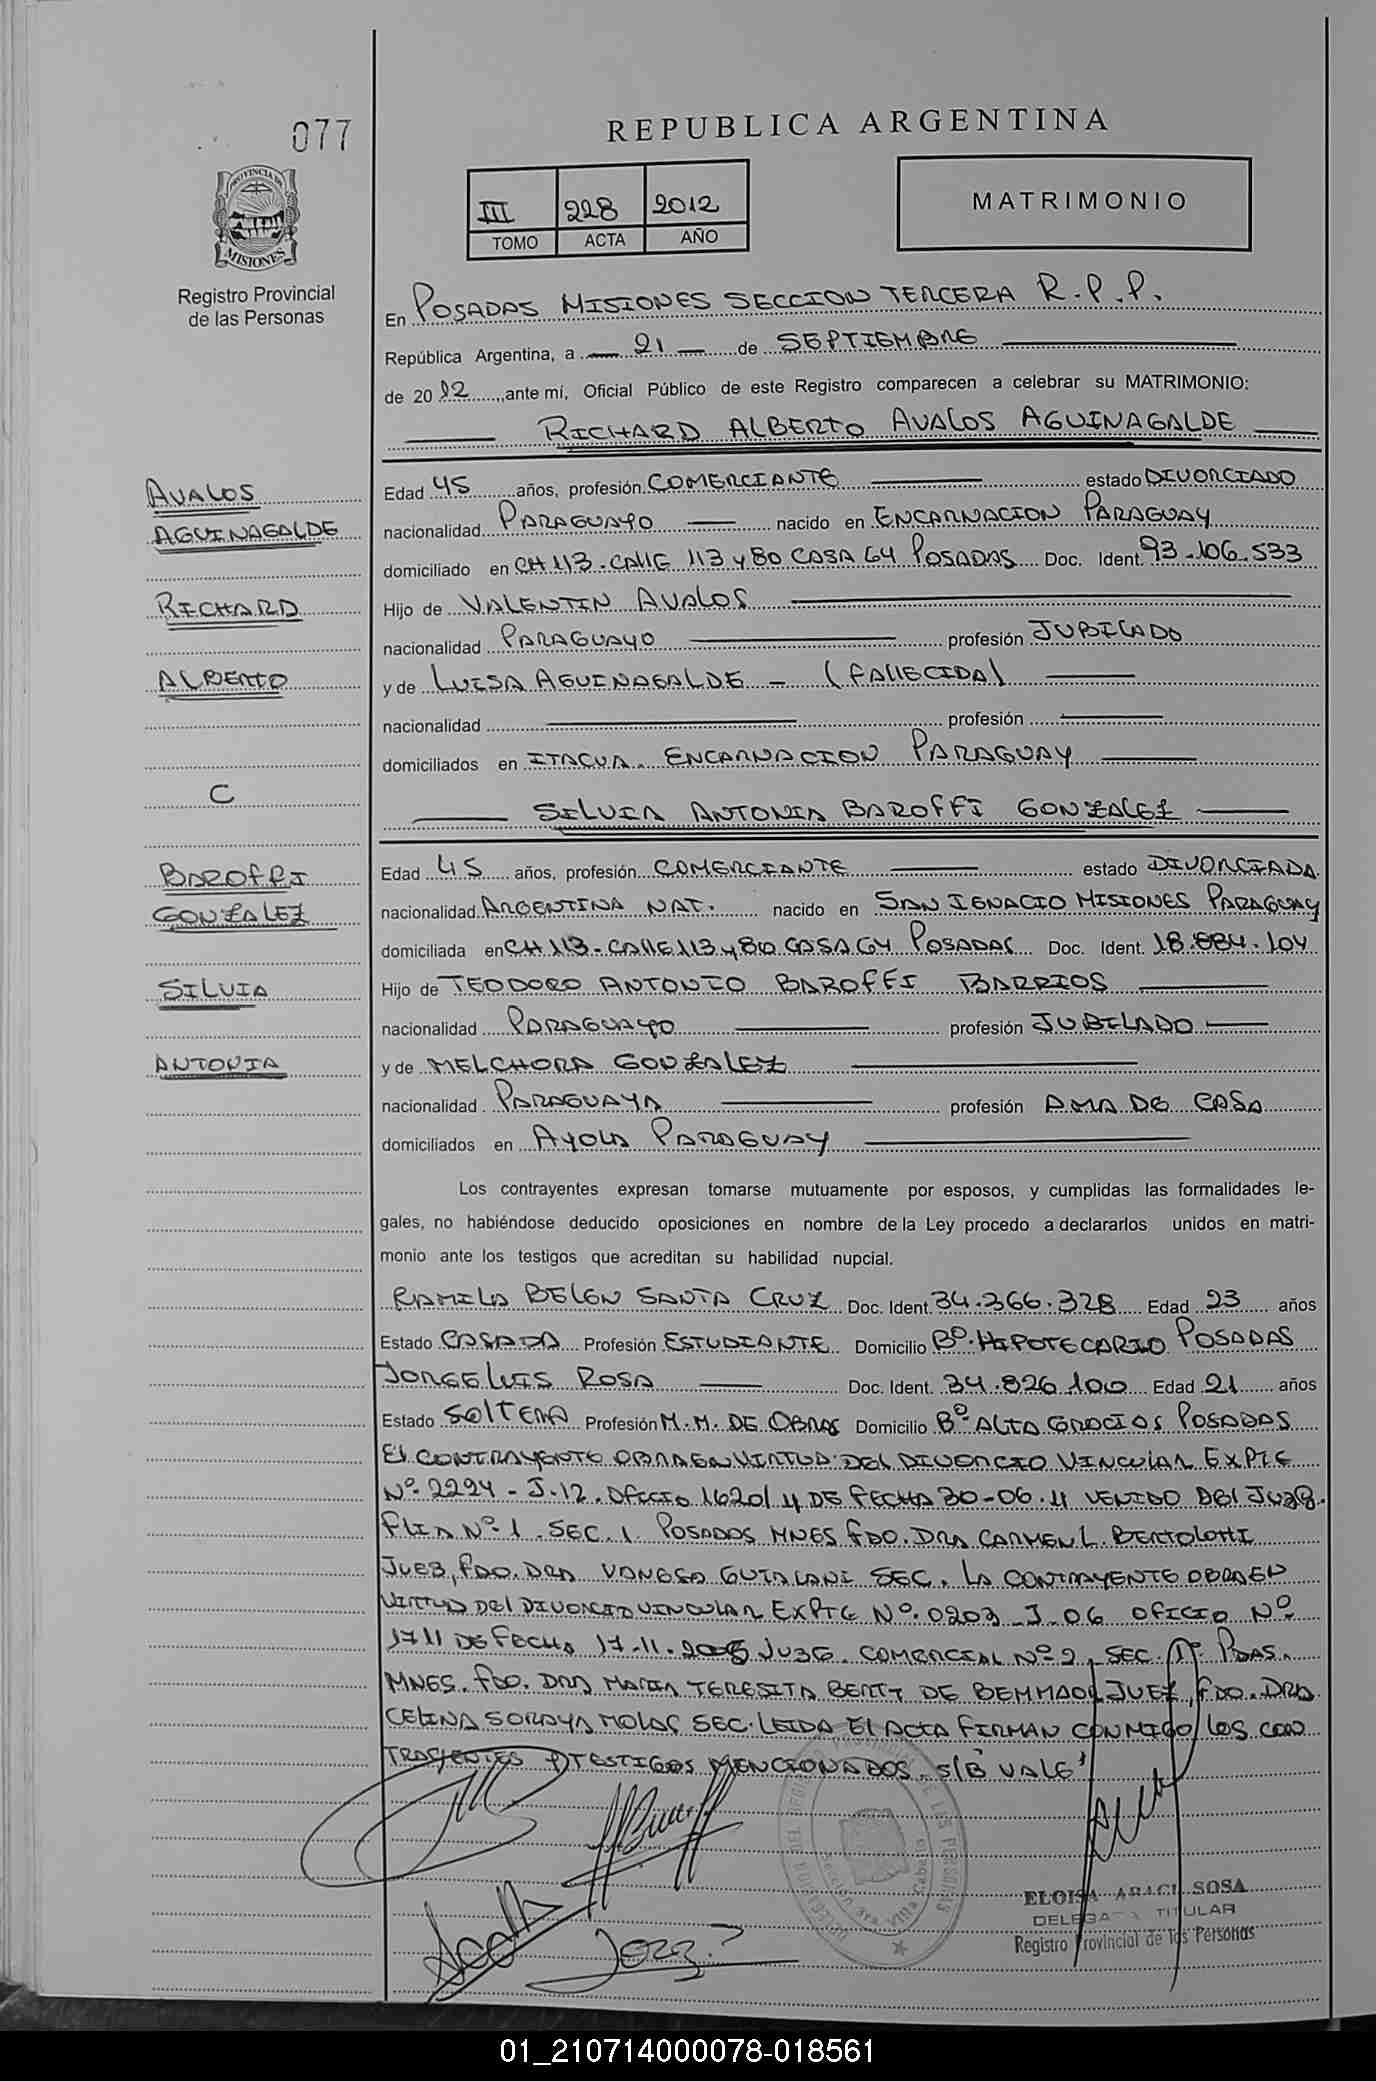 077
REPUBLICA ARGENTINA
PROVINCIA DE
MISIONES
Registro Provincial
de las Personas
III 228 2012
TOMO ACTA AÑO
MATRIMONIO
En POSADAS MISIONES SECCION TERCERA R.P.P.
República Argentina, a 21 de SEPTIEMBRE
de 2012, ante mí, Oficial Público de este Registro comparecen a celebrar su MATRIMONIO:
RICHARD ALBERTO AVALOS AGUINAGALDE
AVALOS
AGUINAGALDE
RICHARD
ALBERTO
C
BAROFFI
GONZALEZ
SILVIA
ANTONIA
Edad 45 años, profesión COMERCIANTE estado DIVORCIADO
nacionalidad PARAGUAYO nacido en ENCARNACION PARAGUAY
domiciliado en CH 113-CALLE 113 y 80 CASA 64 POSADAS Doc. Ident. 93-106-533
Hijo de VALENTIN AVALOS
nacionalidad PARAGUAYO profesión JUBILADO
y de LUISA AGUINAGALDE - (FALLECIDA)
nacionalidad profesión
domiciliados en ITACUA. ENCARNACION PARAGUAY
SILVIA ANTONIA BAROFFI GONZALEZ
Edad 45 años, profesión COMERCIANTE estado DIVORCIADA
nacionalidad ARGENTINA NAT. nacido en SAN IGNACIO MISIONES PARAGUAY
domiciliada en CH 113-CALLE 113 y 80 CASA 64 POSADAS Doc. Ident. 18.884.104
Hijo de TEODORO ANTONIO BAROFFI BARRIOS
nacionalidad PARAGUAYO profesión JUBILADO
y de MELCHORA GONZALEZ
nacionalidad PARAGUAYA profesión AMA DE CASA
domiciliados en AYOLA PARAGUAY
Los contrayentes expresan tomarse mutuamente por esposos, y cumplidas las formalidades le-
gales, no habiéndose deducido oposiciones en nombre de la Ley procedo a declararlos unidos en matri-
monio ante los testigos que acreditan su habilidad nupcial.
RAMILA BELEN SANTA CRUZ Doc. Ident. 34.366.328 Edad 23 años
Estado CASADA Profesión ESTUDIANTE Domicilio Bº. HIPOTECARIO POSADAS
JORGE LUIS ROSA Doc. Ident. 34.826.100 Edad 21 años
Estado SOLTERA Profesión M.M. DE OBRAS Domicilio Bº ALTA GRACIAS POSADAS
EL CONTRAYENTE OBRA EN VIRTUD DEL DIVORCIO VINCULAR EXPTE
Nº. 2294-J-12. OFICIO 1620/11 DE FECHA 30-06-11 VENIDO DEL JUZG.
FLIA Nº. 1. SEC. 1 POSADAS MNES FDO. DRA CARMEN L. BERTOLOTTI
JUEZ, FDO. DRA VANESA GUIALANI SEC. LA CONTRAYENTE OBRA EN
VIRTUD DEL DIVORCIO VINCULAR EXPTE Nº. 0203-J-06 OFICIO Nº.
1711 DE FECHA 17-11- JUZG. COMERCIAL Nº 2, SEC. 1º PDAS.
MNES. FDO. DRA MARIA TERESITA DE JUEZ, FDO. DRA
CELINA SORAYA MOLAS SEC. LEIDA EL ACTA FIRMAN CONMIGO LOS CON
TRAYENTES Y TESTIGOS MENCIONADOS. S/B VALE
ELOISA ARACI SOSA
DELEGADA TITULAR
Registro Provincial de las Personas
Jorg
01_210714000078-018561